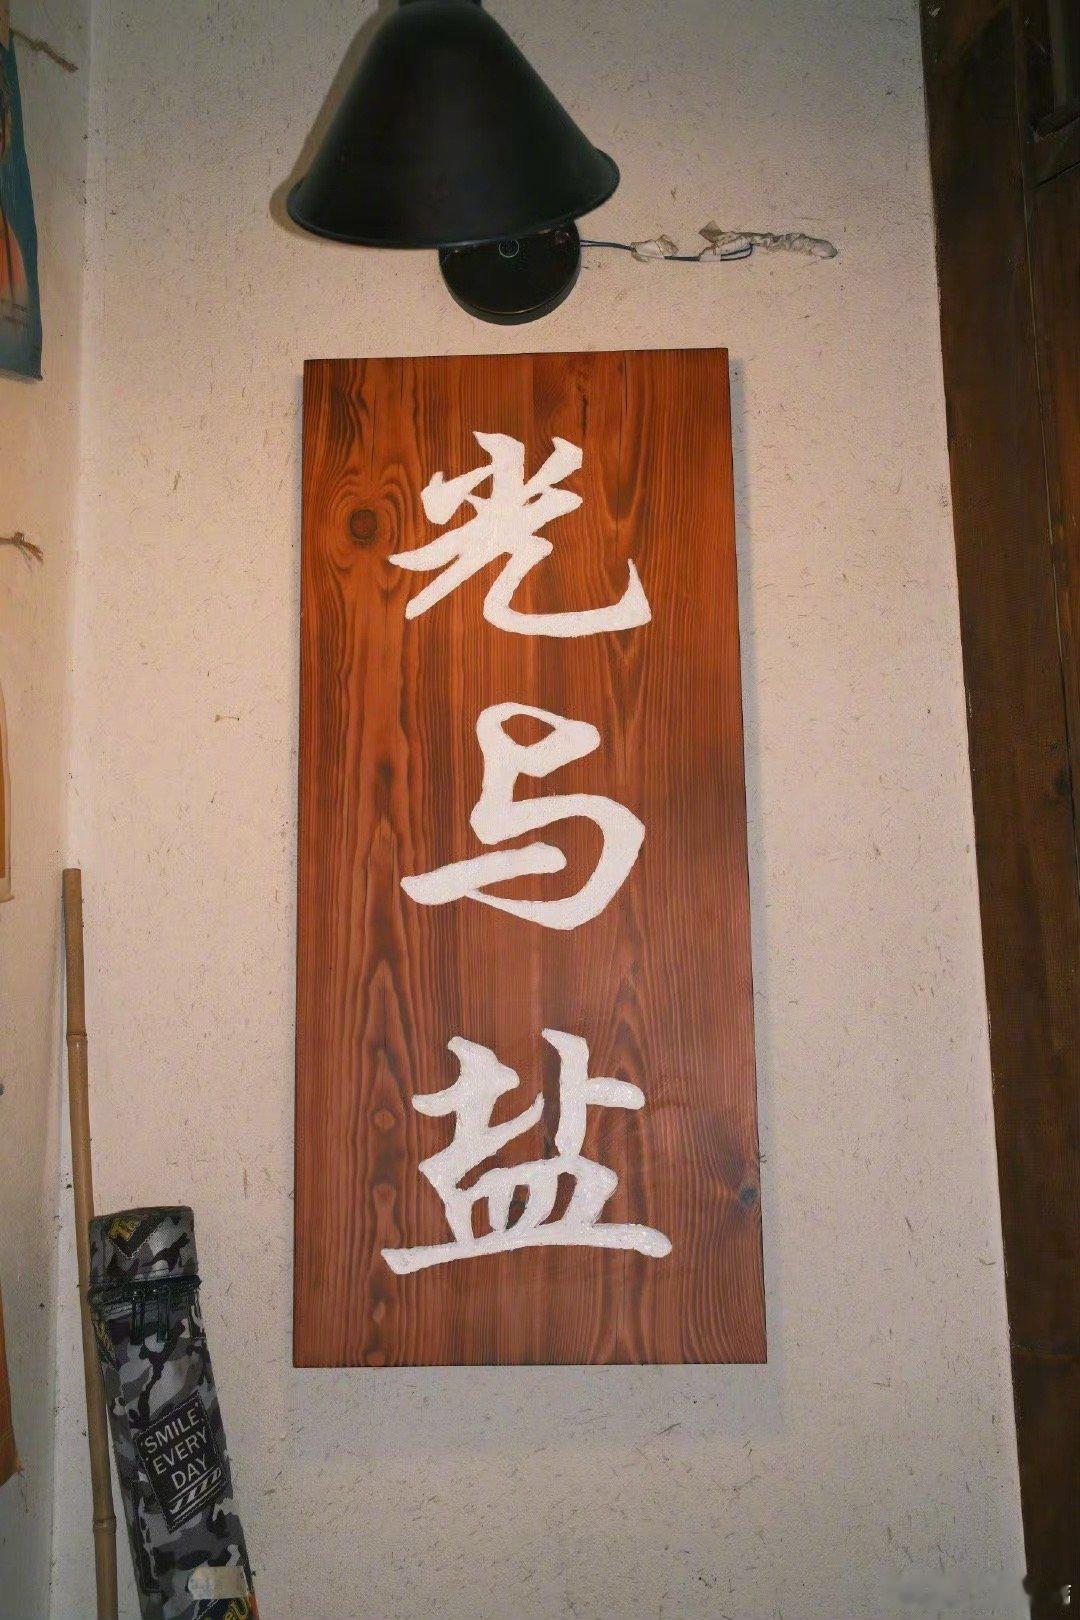 光与盐
SMILE
EVERY
DAY